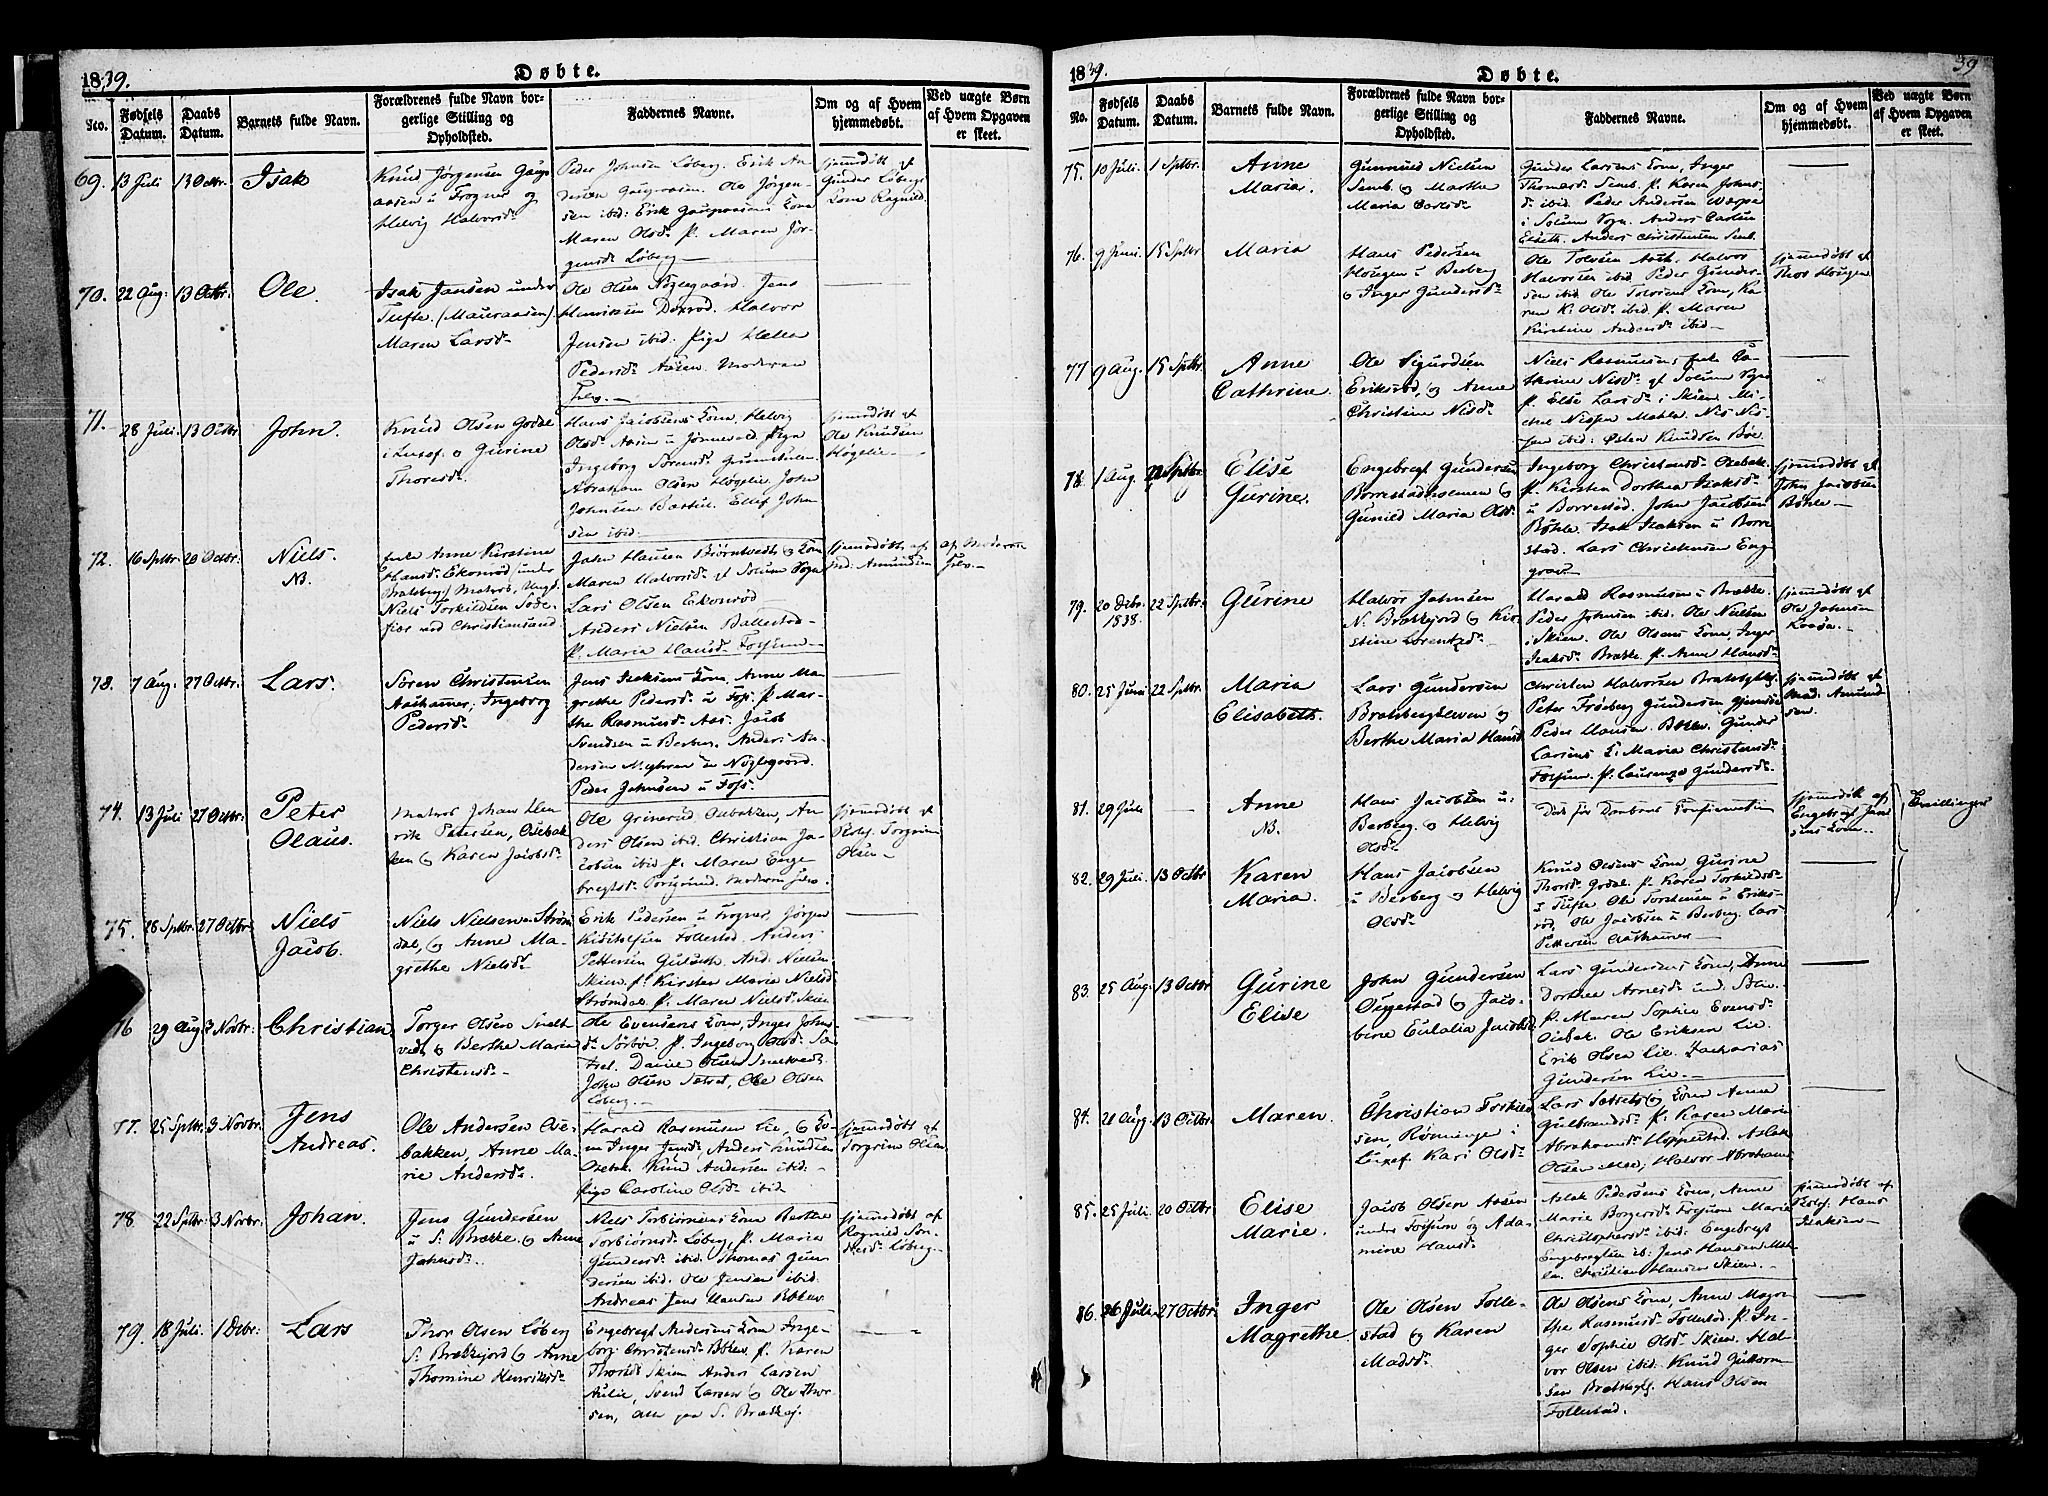 1839.
Døbte.
No.
Fødsels Datum.
Daabs Datum.
Barnets fulde Navn.
Forældrenes fulde Navn borgerlige Stilling og Opholdsted.
Faddernes Navne.
Om og af Hvem hjemmedøbt.
Ved uægte Børn af Hvem Opgaven er skeet.
69. 13 Juli 13 Octbr. Isak
Knud Jørgensen
u Frogner og
Helvig Halvorsd.
Peder Johnsen Løberg. Erik An-
dersen Ole Jørgen-
sen ibid: Erik Kone
Maren Olsd. p. Maren Jør-
gensd. Løberg
hjemmedøbt af
Gunder Løbergs
Kone Ragnild
70. 22 Aug: 13 Octbr: Ole.
Isak Jansen under
Tufte. (Mauraasen)
Maren Larsd.
Ole Olsen Jens
Henriksen Halvor
Jensen ibid. Pige Hella
Pedersd. Aasen. Moderen
selv.
71. 28 Juli. 13 Octbr John.
Knud Olsen Godal
i Luxef. o Gurine
Thoresd.
Hans Jacobsens Kone, Helvig
Olsd. Aasen u Jønnevald Pige
Ingeborg
Abraham Olsen Høgelie. John
Johnsen Ellef John-
sen ibid.
hjemmedøbt af
Ole Knudsen
Høgelie.
72. 16 Sptbr. 20 Octbr: Niels.
NB.
Anne Kirstine
Hansd. Ekonrød under
Bratsberg / Matros, Ungk.
Niels Torkildsen
ved Christiansand
John Hansen Bjørntvedt, og Kone
Maren Halvorsd. af Solum Sogn
Lars Olsen Ekonrød
Anders Nielsen Ballestad
P. Maria Hansd. Fossum
hjemmedøbt af
Amundsen
af Moderen
selv.
73. 7 Aug: 27 Octbr: Lars.
Søren Christensen
Aashamer, Ingeborg
Pedersd.
Jens Isaksens Kone, Anne Ma-
grethe Pedersd. u Foss. P. Mar-
the Rasmusd. Aas. Jacob
Svendsen u Berberg. Anders An-
dersen
Peder Johnsen u Foss.
74. 13 Juli 27 Octbr: Peter
Olaus.
Matros Johan Hen-
rik Petersen, Osebak-
ken og Karen Jacobsd.
Ole Grinerud Osebakken, An-
ders Olsen ibid. Christian Ja-
cobsen ibid p. Maren Enge-
bregtsd. Porsgrund. Moderen selv.
hjemmedøbt af
Torgrim
Olsen
75. 28 Sptbr. 27 Octbr: Niels
Jacob.
Niels Nielsen Strøm-
dal, og Anne Ma-
grethe Nielsd.
Erik Pedersen u Frogner, Jørgen
Follestad. Anders
Pettersen Gulseth. And. Nielsen
Skien. p. Kirsten Marie Nielsd.
Strømdal. p. Maren Nielsd. Skien
76 29 Aug 3 Novbr: Christian.
Torger Olsen Smelt-
vedt, og Berthe Maria
Christensd.
Ole Evensens Kone, Inger Johns-
d. Sørbøe. P. Ingeborg Olsd. Sæ-
tret. Daniel Olsen Smeltvedt.
John Olsen Sætret, Ole Olsen
Løberg.
77. 25 Sptbr 3 Novbr: Jens
Andreas.
Ole Andersen Ose-
bakken, Anne Ma-
rie Andersd.
Harald Rasmusen Lie, og Ko-
ne Inger Jensd, Anders Knudsen
Osebak. Knud Andersen ibid.
Pige Caroline Olsd. ibid.
hjemmedøbt af
Torgrim Olsen
78 22 Sptbr 3 Novbr: Johan.
Jens Gundersen
u S. Brække. og Anne
Johnsd.
Niels Torbiørnsens Kone Berthe
Torbiørnsd. Løberg, p. Maria
Gundersd. ibid. Thomas Gun-
dersen ibid. Ole Jensen ibid.
Andreas Jens Hansen Bøhle
hjemmedøbt af
Ragnild
Løberg
79. 18 Juli. 1 Decbr: Lars
Thor Olsen Løberg
S. Brækkejord og Anne
Thomine Henriksd.
Engebregt Andersens Kone Inge-
borg Christensd. Bøhle, p. Karen
Thorsd. Skien Anders Larsen
Aulie, Svend Larsen og Ole Thor-
sen, alle paa S. Brækkej.
1839.
Døbte.
39
No.
Fødsels Datum.
Daabs Datum.
Barnets fulde Navn.
Forældrenes fulde Navn borgerlige Stilling og Opholdsted.
Faddernes Navne.
Om og af Hvem hjemmedøbt.
Ved uægte Børn af Hvem Opgaven er skeet.
75. 10 Juli. 1 Sptbr. Anne
Maria.
Gunnuld Nielsen
Semb. og Marthe
Maria
Gunder Larsens Kone, Inger
Thomasd. Semb. p. Karen Johns-
d. ibid. Peder Andersen
i Solum Sogn. Anders Carlsen
Elseth. Anders Christensen Semb.
76. 9 Juni. 15 Sptbr Maria
Hans Pedersen
Hougen u Berberg
og Inger Gundersd.
Ole Tolvsen Aas. Halvor
Halvorsen ibid. Peder Gunder-
sen ibid. Ole Tolvsens Kone, Ka-
ren K. Olsd. ibid. p. Maren
Kirstine Andersd. ibid.
hjemmedøbt af
Thor Hougen
77 9 Aug. 15 Sptbr. Anne
Cathrine.
Ole Sigurdsen
Eriksrød, og Anne
Christine Nisd.
Niels Rasmusens Ca-
thrine Nisd. af Solum Sogn
p. Else Larsd. i Skien. Mi-
chel Nissen Nis Nis-
sen ibid: Østen Knudsen Bøe.
78. 1 Aug. 22 Sptbr. Elise
Gurine.
Engebregt Gundersen
Borrestadholmen og
Gunild Maria Olsd.
Ingeborg Christensd. Osebak.
p. Kirsten Dorthea Isaksd.
u Borrestad. John Jacobsen
Bøhle. Isak Isaksen u Borre-
stad. Lars Christensen Eng-
grav.
hjemmedøbt af
John Jacobsen
Bøhle
79. 20 Decbr. 1838. 22 Sptbr. Gurine
Halvor Johnsen
N. Brækkejord og Kir-
stine Lorentzd.
Harald Rasmusen u Brække.
Peder Johnsen ibid. Ole Nielsen
i Skien. Ole Olsens Kone, Inger
Isaksd. Brække. p. Anne Hansd.
hjemmedøbt af
Ole Johnsen
80. 25 Juni 22 Sptbr. Maria
Elisabeth.
Lars Gundersen
Bratsbergkleven og
Berthe Maria Hansd.
Christen Halvorsen
Peter Frøberg Gundersen
Peder Hansen Bøhle. Gunder
Larsens K. Maria Christensd.
Fossum. p. Laurenze Gundersd.
hjemmedøbt af
Mad. Amund-
sen.
81. 29 Juli Anne
NB.
Hans Jacobsen u:
Berberg. og Helvig
Olsd.
Død før Daabens Confirmation
hjemmedøbt af
Engebregt Jen-
sens Kone.
Tvillinger
82. 29 Juli. 13 Octbr Karen
Maria.
Hans Jacobsen
u Berberg og Helvig
Olsd.
Knud Olsens Kone Gurine
Thorsd. Godal. p. Karen Torkildsd.
Tufte Ole Torstensen u Eriks-
rød, Ole Jacobsen u Berberg. Lars
Pettersen Aashamer
83. 25 Aug. 13 Octbr Gurine
Elise
John Gundersen
Oygestad og Jaco-
bine Eulalia Jacobsd.
Lars Gundersens Kone, Anne
Dorthea Arnesd.
p. Maren Sophie Evensd.
Osebak. Ole Eriksen Lie.
Erik Olsen Lie. Zacharias
Gundersen Lie.
84. 21 Aug. 13 Octbr. Maren.
Christian Torkild-
sen, Rønningen i
Luxef. Kari Olsd.
Lars Sætrets Kone Anne
Gulbrandsd. p. Karen Marie
Abrahamsd. Hoppestad. Aslak
Olsen Moe, Halvor Abrahams.
85. 25 Juli. 20 Octbr Elise
Marie.
Jacob Olsen Aasen
under Fossum og Ada-
mine Hansd.
Aslak Pedersens Kone, Anne
Marie Borgersd. Fossum Marie
Christophersd. ibid. Engebregt
Engebregtsen ib: Jens Hansen
Christian Hansen Skien.
hjemmedøbt af
Hans
Isaksen
86. 26 Juli. 27 Octbr Inger
Magrethe.
Ole Olsen Folle-
stad og Karen
Madsd.
Ole Olsens Kone, Anne Magre-
the Rasmusd. Follestad. P. In-
ger Sophie Olsd. Skien. Hal-
vor Olsen ibid. Knud Guttorm-
sen Hans Olsen
Follestad.